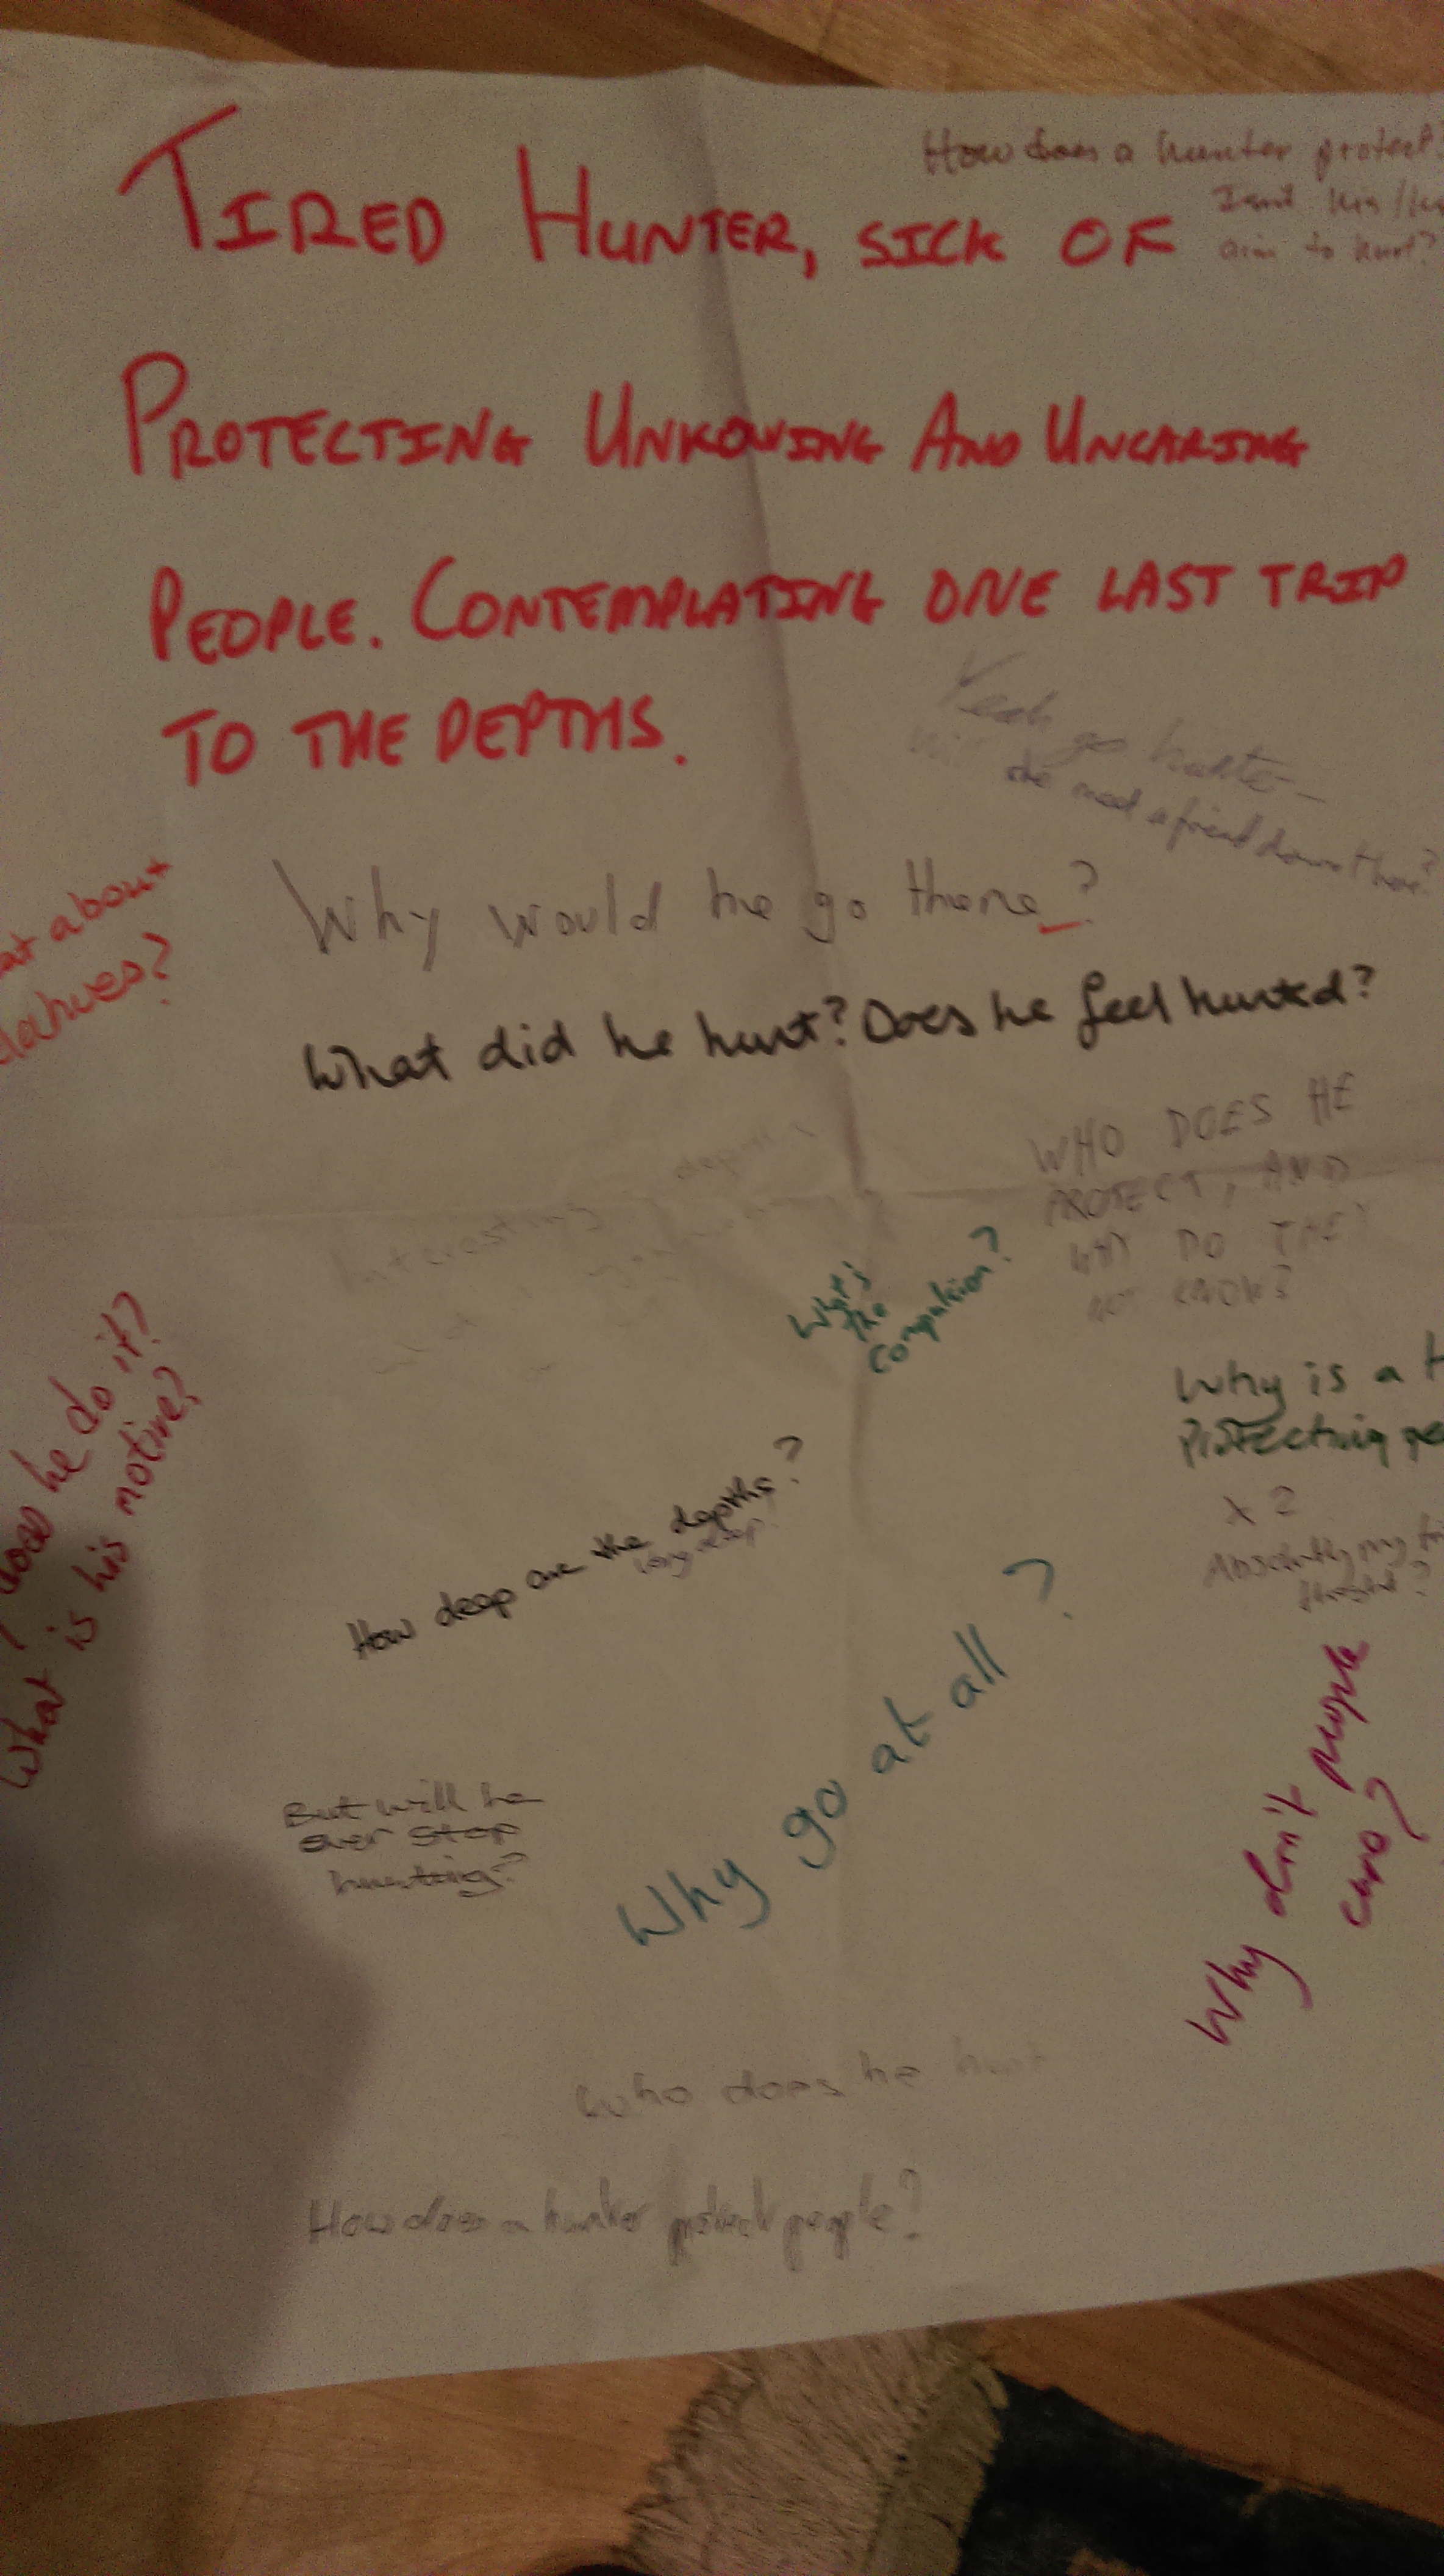 TIRED HUNTER, SICK OF
PROTECTING UNKOWING AND UNCARING
PEOPLE. CONTEMPLATING ONE LAST TRIP
TO THE DEPTHS.
How does a hunter protect?
Isnt his/
aim to hunt?
Yeah go hunter
she meet a friend down there?
Why would he go there?
at about
What did he hunt? Does he feel hunted?
Interesting
WHO DOES HE
PROTECT, AND
WHY DO THEY
NOT KNOW?
What's
the
compulsion?
Why is a
Protecting
x 2
Absolutely my
does he do it?
What is his motive?
How deep are the depths?
very deep
Why go at all?
But will he
ever stop
hunting?
Why don't people
care?
Who does he hunt
How does a hunter protect people?